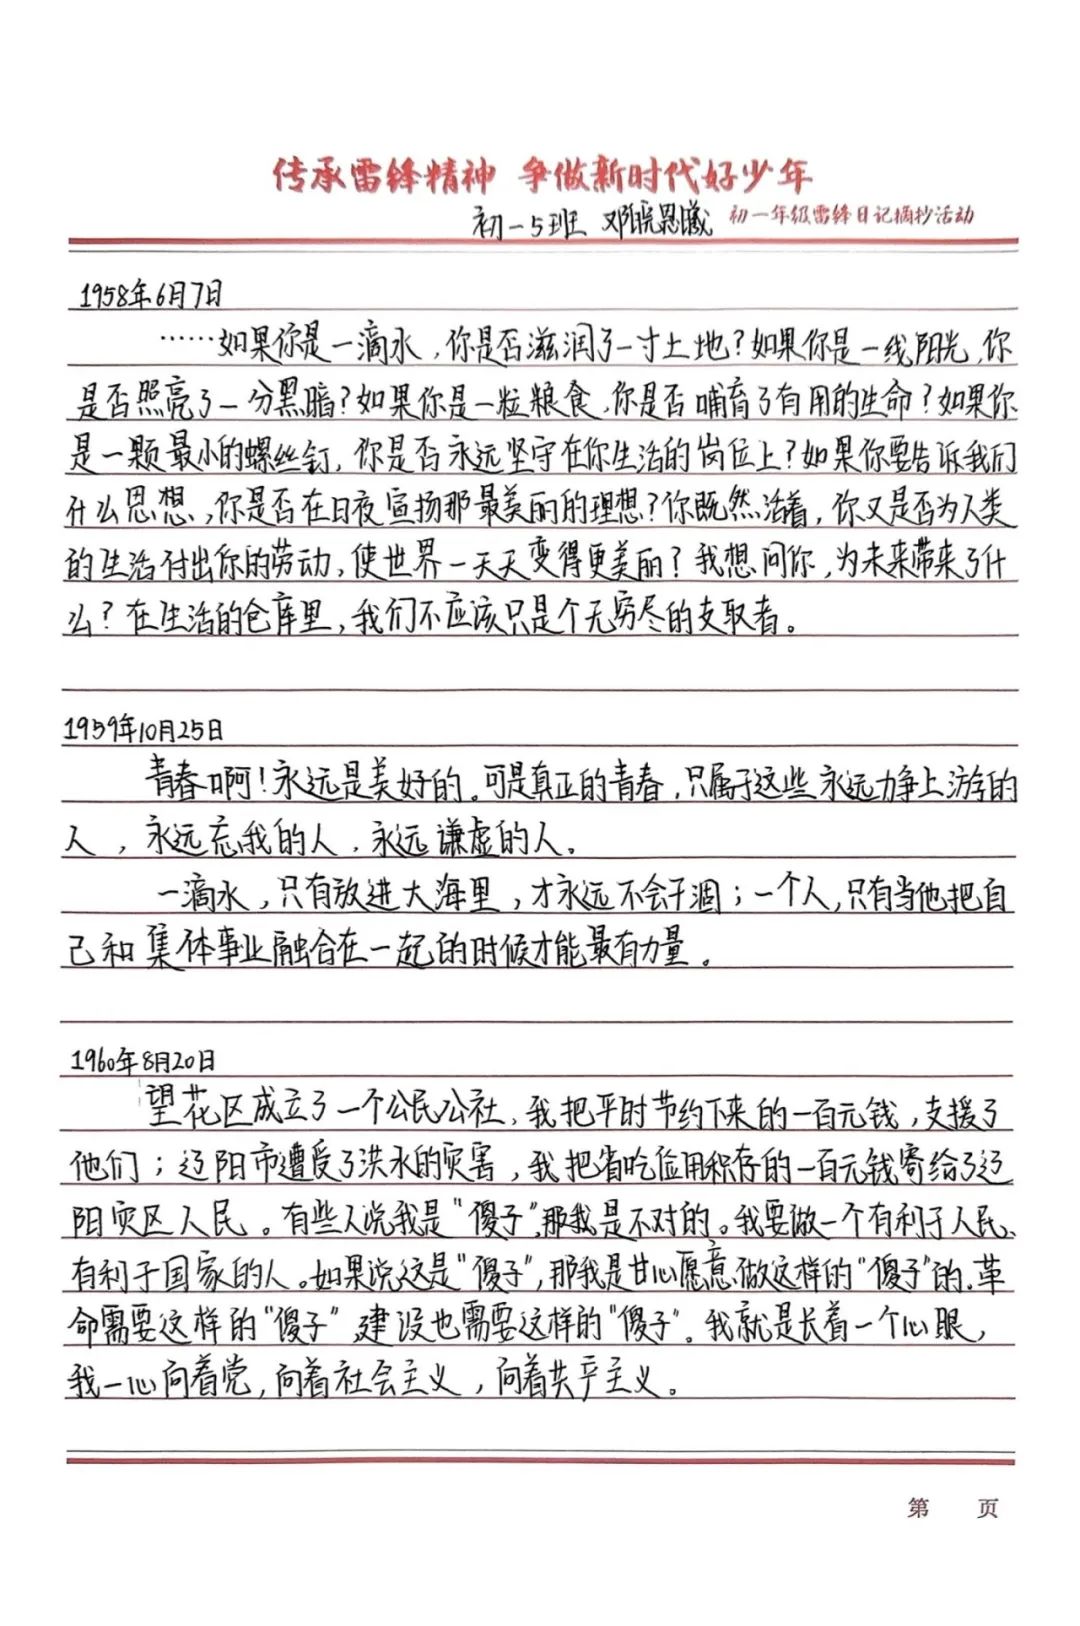 传承雷锋精神 争做新时代好少年
初一5班 邓皖恩曦 初一年级雷锋日记摘抄活动
1958年6月7日
……如果你是一滴水，你是否滋润了一寸土地？如果你是一线阳光，你
是否照亮了一分黑暗？如果你是一粒粮食，你是否哺育了有用的生命？如果你
是一颗最小的螺丝钉，你是否永远坚守在你生活的岗位上？如果你要告诉我们
什么思想，你是否在日夜宣扬那最美丽的理想？你既然活着，你又是否为人类
的生活付出你的劳动，使世界一天天变得更美丽？我想问你，为未来带来了什
么？在生活的仓库里，我们不应该只是个无穷尽的支取者。
1959年10月25日
青春啊！永远是美好的。可是真正的青春，只属于这些永远力争上游的
人，永远忘我的人，永远谦虚的人。
一滴水，只有放进大海里，才永远不会干涸；一个人，只有当他把自
己和集体事业融合在一起的时候才能最有力量。
1960年8月20日
望花区成立了一个公民公社，我把平时节约下来的一百元钱，支援了
他们；辽阳市遭受了洪水的灾害，我把省吃俭用积存的一百元钱寄给了辽
阳灾区人民。有些人说我是“傻子”，那我是不对的。我要做一个有利于人民、
有利于国家的人。如果说这是“傻子”，那我是甘心愿意做这样的“傻子”的，革
命需要这样的“傻子”，建设也需要这样的“傻子”。我就是长着一个心眼，
我一心向着党，向着社会主义，向着共产主义。
第 页